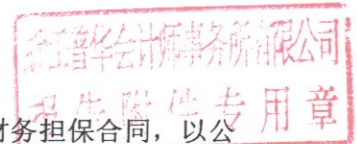 普华会计师事务所有限公司
报告附件专用章
财务担保合同，以公